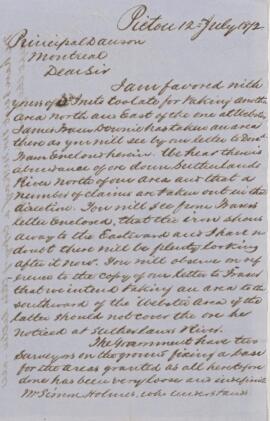 Pictou 12 July 1872
Principal Dawson
Montreal
Dear Sir
I am favored with
yours of inst too late for taking another
area North an East of the one at
James Fraser Downie has taken an area
there as you will see by our letter to Don
Fraser Enclosed herein. We hear there is
abundance of ore down Sutherlands
River North of our area and that a
number of claims are taken out in that
direction. You will see from Frasers
letter Enclosed, that the iron shows
away to the Eastward and I have no
doubt there will be plenty looking
after it now. You will observe on re
ference to the copy of our letter to Fraser
that we intend taking an area to the
southward of the "Webster Area" if the
latter should not cover the ore he
noticed at Sutherlands River.
The Government have two
Surveyors on the ground fixing a base
for the areas granted as all heretofore
done has been very loose and indefinite
Mr Simon Holmes, who understands